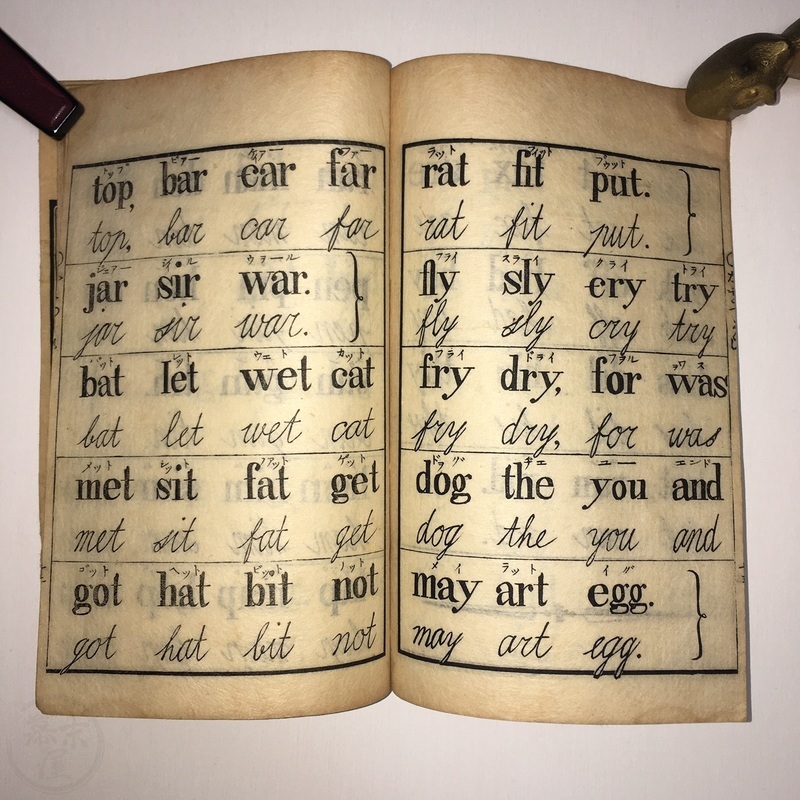 トップ ファー
top, bar car far
top, bar car far
ウヲール
jar sir war.
jar sir war.
バット レット ウェト カット
bat let wet cat
bat let wet cat
メット シット ファット ゲット
met sit fat get
met sit fat get
ゴット ヘット ビット ノット
got hat bit not
got hat bit not
ラット フィット プゥット
rat fit put.
rat fit put.
フライ スライ クライ トライ
fly sly cry try
fly sly cry try
フライ ドライ
fry dry, for was
fry dry, for was
ユー エンド
dog the you and
dog the you and
メイ ラット イグ
may art egg.
may art egg.